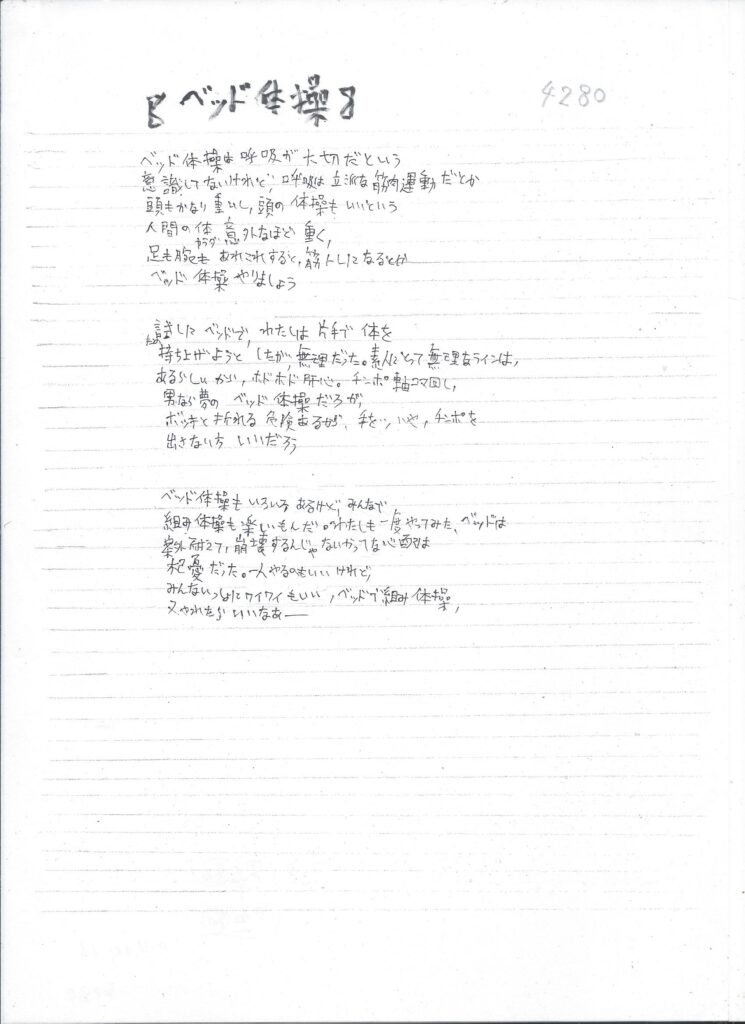 『ベッド体操』
4280
ベッド体操は呼吸が大切だという
意識してないけれど、呼吸は立派な筋肉運動だとか
頭もかなり重いし、頭の体操もいいという
人間の体意外なほど重く、
カラダ
足も腕もあれこれすると、筋トレになるとか
ベッド体操やりましょう
試しにベッドで、わたしは片手で体を
ため
持ち上げようとしたが、無理だった。素人にとって無理なラインは、
あるらしいから、ホドホド肝心。チンポ軸コマ回し、
男なら夢のベッド体操だろが、
ポッキと折れる危険あるが、手を、いや、チンポを
出さない方いいだろう
ベッド体操もいろいろあるけど、みんなで
組み体操も楽しいもんだ。わたしも一度やってみた、ベッドは
案外耐えて、崩壊するんじゃないかってな心配は
杞憂だった。一人やるのもいいけれど、
みんないっしょにワイワイもいい、ベッドで組み体操、
又やれたらいいなあー